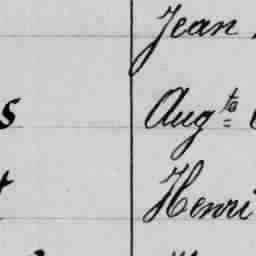 Jean
s
Augte
t
Henri